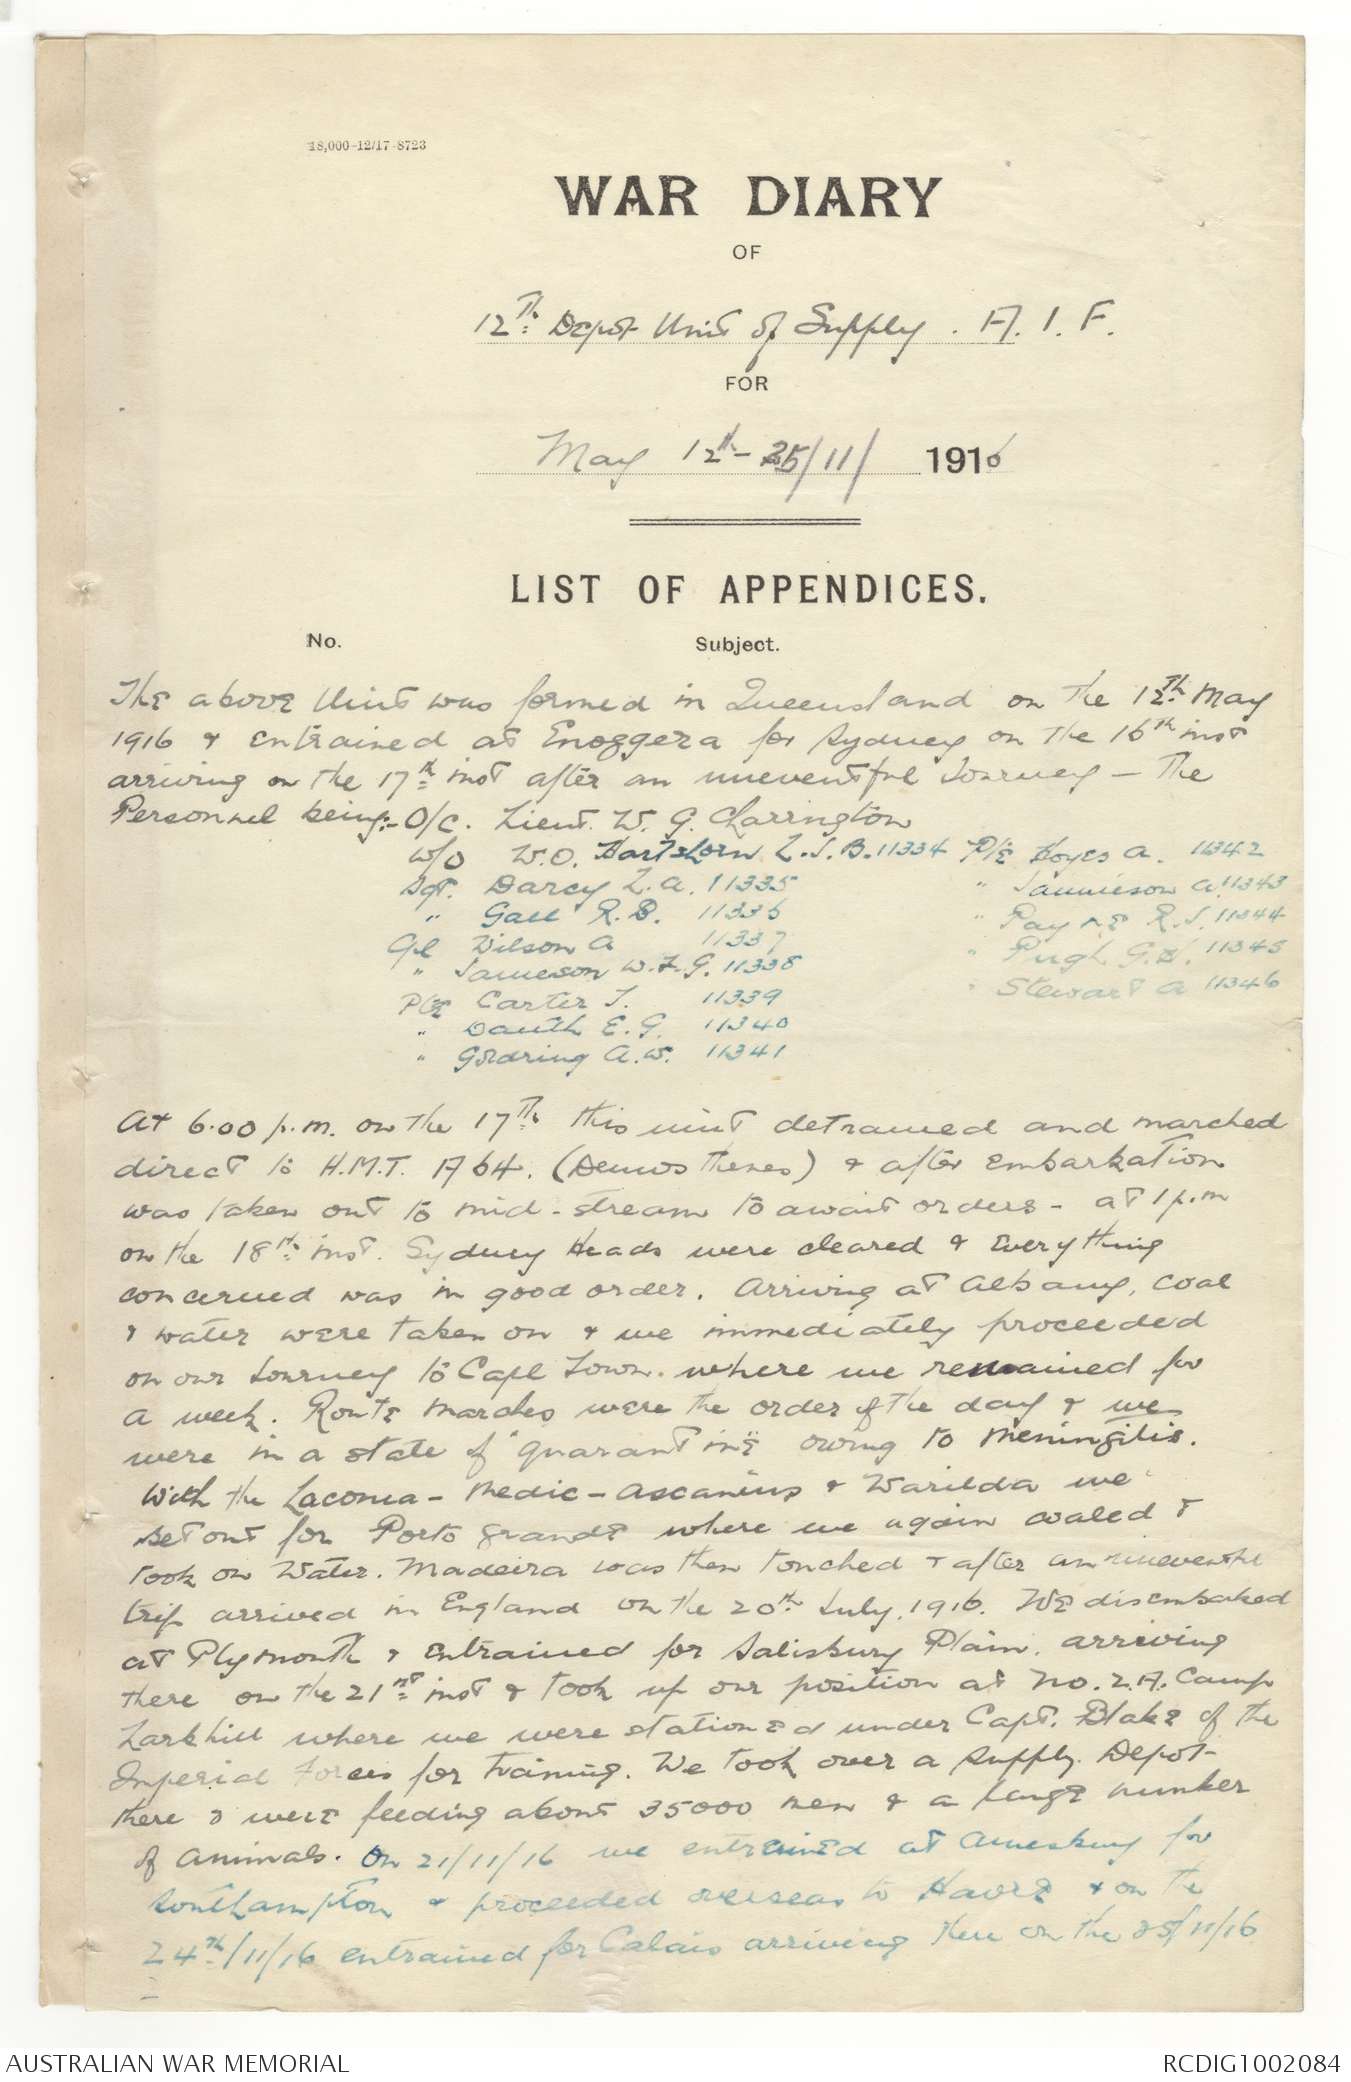 18,000-12/17-8723
WAR DIARY
OF
12th Depot Unit of Supply. A. I. F.
FOR
May 12th - 25/11/ 1916
LIST OF APPENDICES.
No. Subject.
The above Unit was formed in Queensland on the 12th May
1916 & entrained at Enoggera for Sydney on the 16th inst
arriving on the 17th inst after an uneventful journey - The
Personnel being:- O/C. Lieut. W. G. Charrington
W/O W.O. Hartshorn L. J. B. 11334 Pte Hoyes A. 11342
Sgt. Darcy L. A. 11335 " Jammieson A. 11343
" Gall R. B. 11336 " Payne R. J. 11344
Cpl Wilson A 11337 " Pugh G. H. 11345
" Jameson W. F. G. 11338 " Stewart A 11346
Pte Carter J. 11339
" Dauth E. G. 11340
" Goldring A. W. 11341
At 6.00 p.m. on the 17th this unit detrained and marched
direct to H.M.T. A 64. (Demosthenes) & after embarkation
was taken out to mid-stream to await orders - at 1 p.m
on the 18th inst. Sydney Heads were cleared & everything
concerned was in good order. Arriving at Albany, coal
& water were taken on & we immediately proceeded
on our journey to Cape Town. where we remained for
a week. Route marches were the order of the day & we
were in a state of "quarantine" owing to meningitis.
With the Laconia - Medic - Ascanius & Warilda we
set out for Porto grande where we again coaled &
took on Water. Madeira was then touched & after an uneventful
trip arrived in England on the 20th July, 1916. We disembaked
at Plymouth & entrained for Salisbury Plain. arriving
there on the 21st inst & took up our position at No. 2.A. Camp
Larkhill where we were stationed under Capt. Blake of the
Imperial Forces for training. We took over a Supply Depot-
there & were feeding about 35000 men & a large number
of animals. On 21/11/16 we entrained at Amesbury for
Southampton & proceeded overseas to Havre & on the
24th/11/16 entrained for Calais arriving there on the 25/11/16
AUSTRALIAN WAR MEMORIAL RCDIG1002084